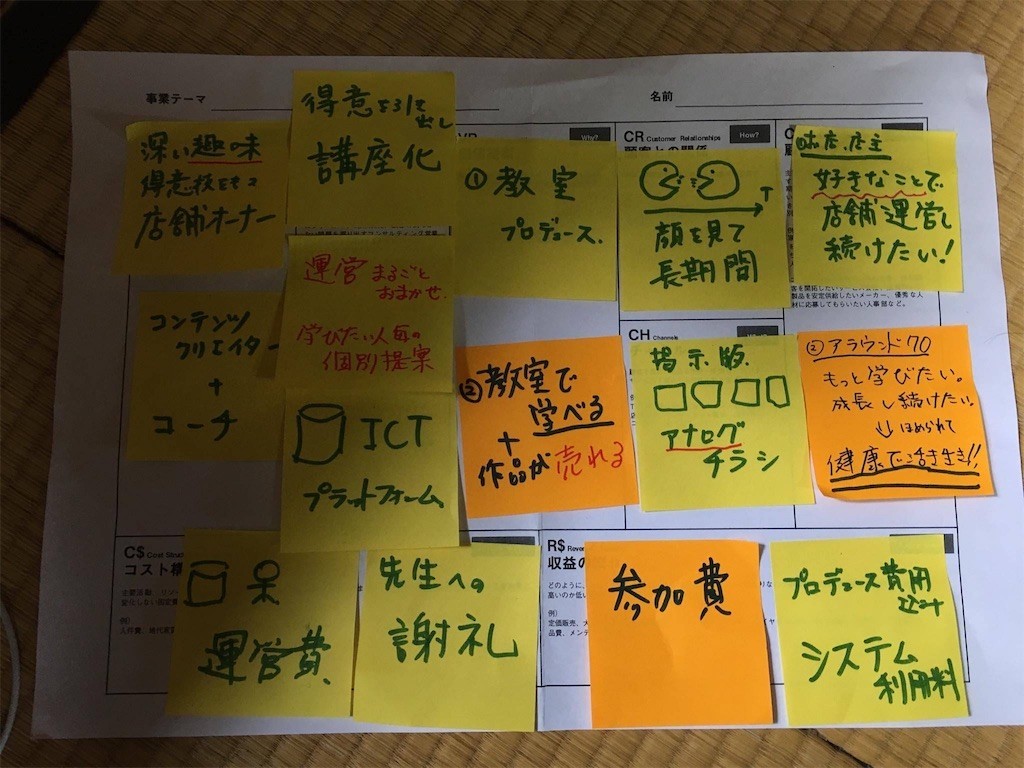 事業テーマ
名前
深い趣味
得意技をもつ
店舗オーナー
得意を引き出し
講座化
①教室
プロデュース.
Why?
CR Customer Relationships
顧客との関係
How?
顔を見て
長期間
お店,店主
好きなことで
店舗運営し
続けたい!
製品を安定供給したいメーカー、優秀な人
材に応募してもらいたい人事部など。
運営まるごと
おまかせ.
学びたい人毎の
個別提案
コンテンツ
クリエイター
+
コーチ
ICT
プラットフォーム
②教室で
学べる
+
作品が売れる
CH Channels
掲示版
アナログ
チラシ
②アラウンド70
もっと学びたい。
成長し続けたい.
ほめられて
健康で活き生き!!
C$ Cost
コスト
運営費
先生への
謝礼
R$
収益の
どのように、
例)
定価販売、
参加費
プロデュース費用
込み
システム
利用料